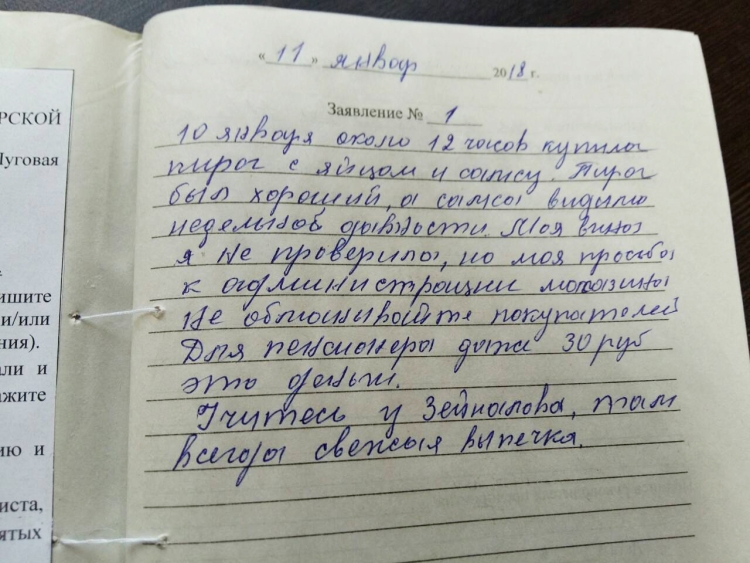 РСКОЙ
Луговая
ишите
и/или
ния).
али и
ажите
ию и
иста,
ятых
«11» январ 2018 г.
Заявление № 1
10 января около 12 часов купила
пирог с яйцом и самсу. Пирог
был хороший, а самса видимо
недельной давности. Моя вина
я не проверила, но моя просьба
к администрации магазина
Не обманивайте покупателей
Для пенсионера даже 30 руб
это деньги.
Учитесь у Зейналова, там
всегда свежая выпечка.